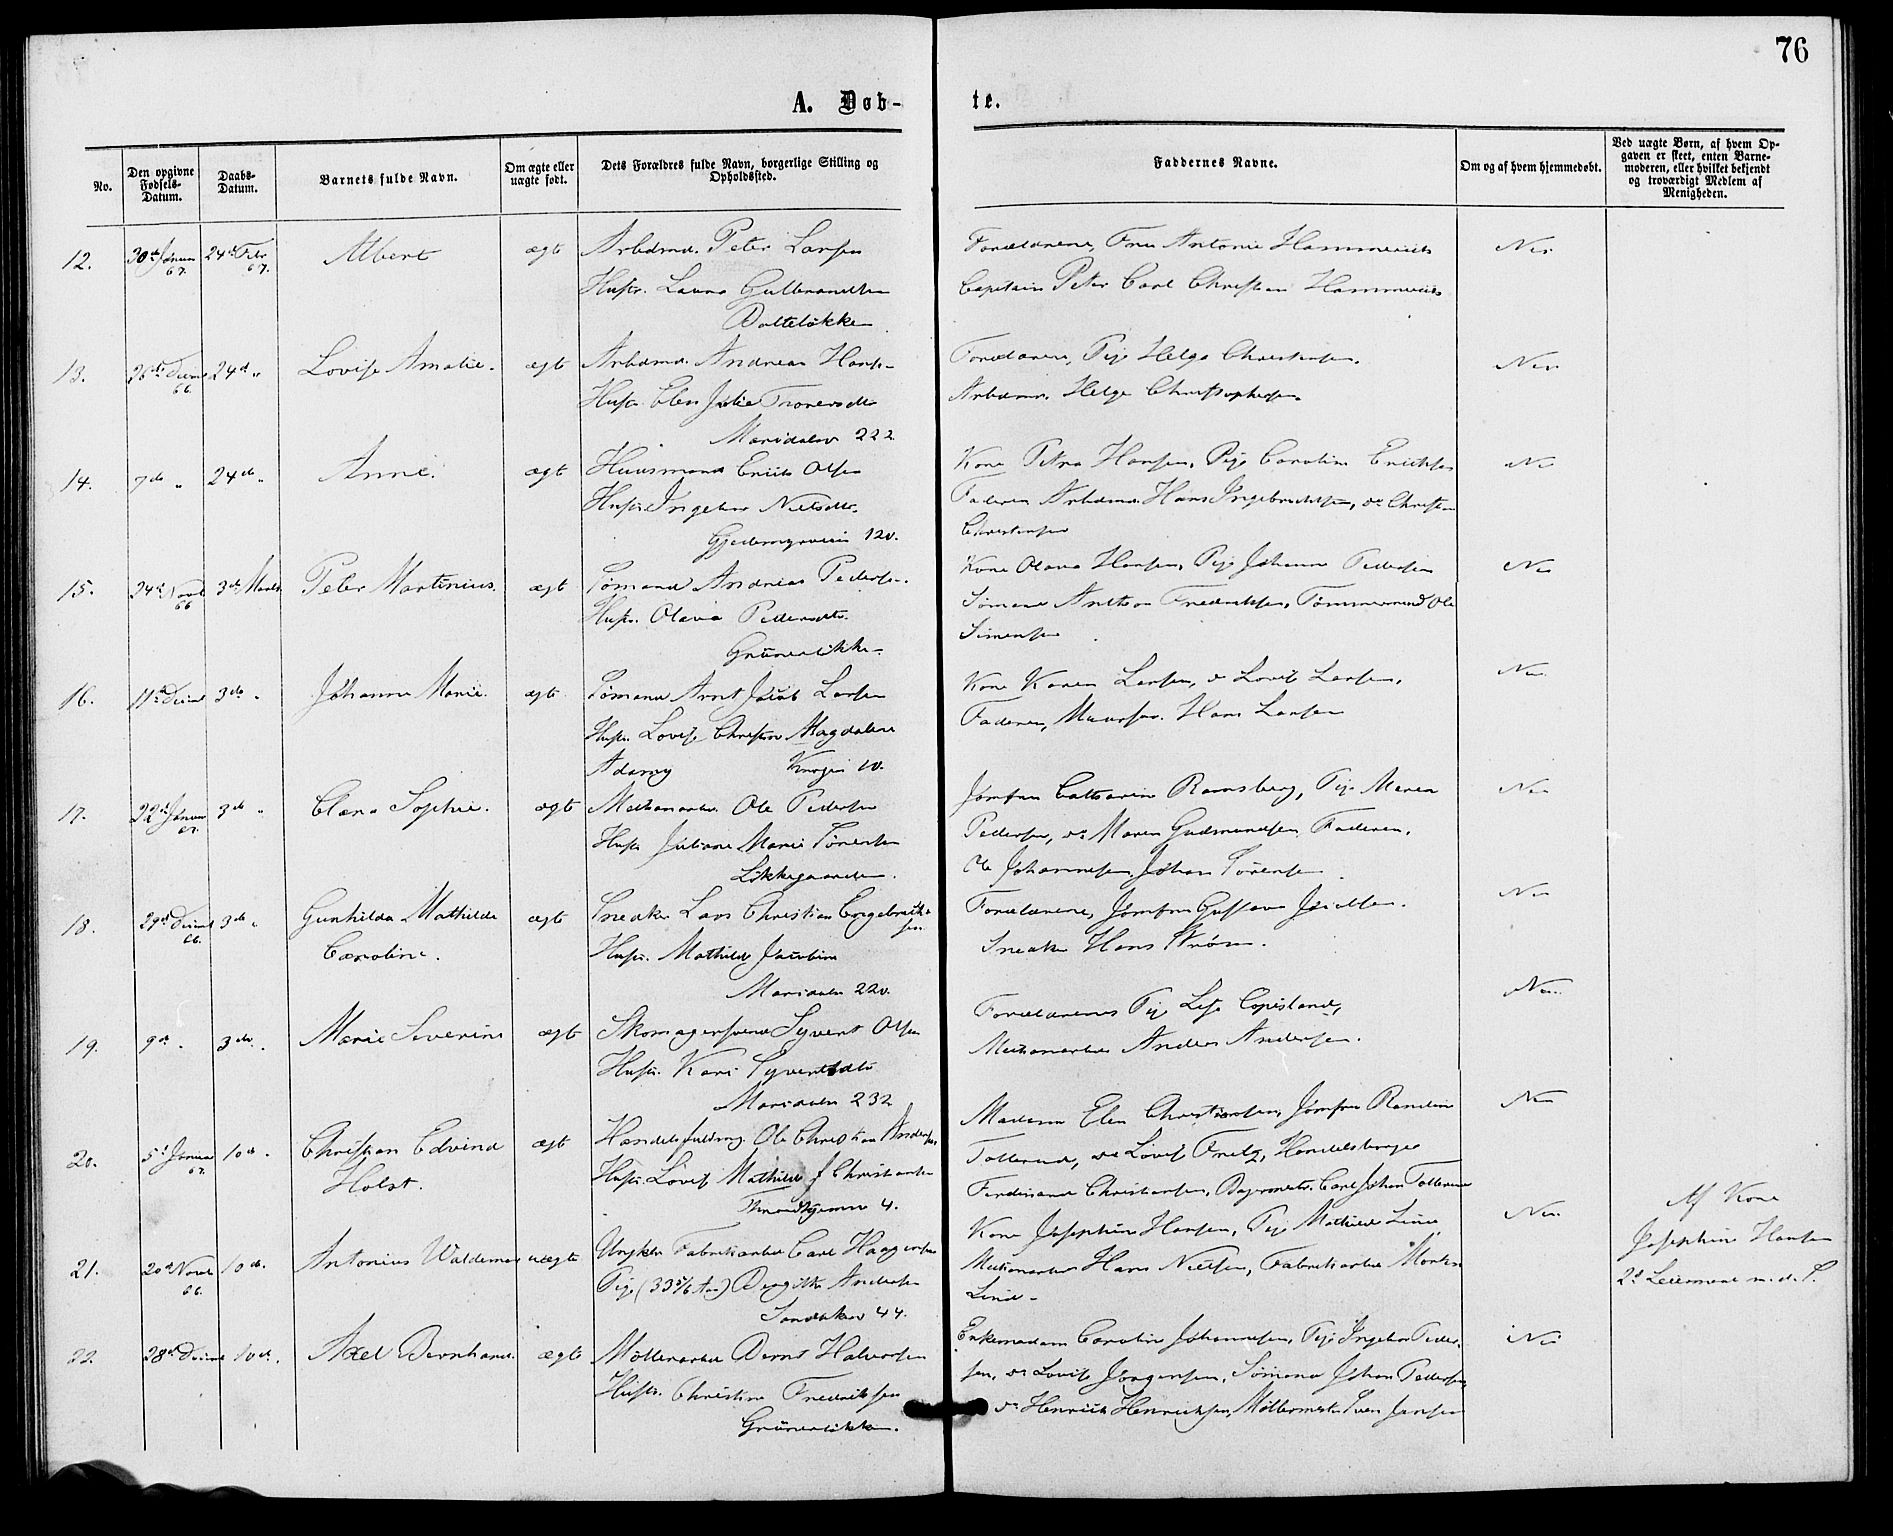 76
A. Døb-
te.
No.
Den opgivne Fødsels-Datum.
Daabs-Datum.
Barnets fulde Navn.
Om ægte eller uægte født.
Dets Forældres fulde Navn, borgerlige Stilling og Opholdssted.
Faddernes Navne.
Om og af hvem hjemmedøbt.
Ved uægte Børn, af hvem Op-
gaven er skeet, enten Barne-
moderen, eller hvilket bekjendt
og troværdigt Medlem af
Menigheden.
12. 30te Januar 67. 24de Febr 67. Albert ægt Arbdmd. Peter Larsen
Hustr. Laura Gulbrandsen
Dælteløkken
Forældrene, Fru Antonie Hammerich
Capitain Peter Carl Christian Hammerich
Nei
13. 66. 24d " Lovise Amalie. ægt Arbdmd. Andreas Hans-
Hustr Elen Julie
Maridalsv 222
Forældrene, Pige Helga Christensen.
Arbdmd. Helge Christophersen.
Nei
14. 7de " 24de " Anne. ægt Huusmand Erik Olsen
Hustr. Ingebor Nielsdtr.
120.
Kone Petra Hansen, Pige Caroline Eriksen
Faderen Arbdmd. Hans Ingebrechtsen, do Christen
Christensen
Nei
15. 24de Novb 66 3de Marts Peter Martinius. ægt Sømand Andreas Pedersen.
Hustr. Olava Pedersdtr.
Grünerløkken.
Kone Olava Hansen, Pige Johanne Pedersen
Sømand Anthon Fredriksen, Tømmermand Ole
Simensen
Nei
16. 11te Decbr 3de " Johanne Marie. ægt Sømand Arnt Jacob Larsen
Hustr. Lovise Christine Magdalene
Adamsg
Kone Karen Larsen, do Lovise Larsen,
Faderen, Muursv. Hans Larsen
Nei
17. 22de Januar 67. 3de " Clara Sophie. ægt Mechanarb. Ole Pedersen
Hustr Juliane Marie Sørensen
Løkkegaarden.
Jomfru Cathrine Ramsberg, Pige Maren
Pedersen, do Maren Gudmundsen, Faderen,
Ole Johannesen, Johan Sørensen
Nei
18. 29de Decbr 66. 3de " Gunhilda Mathilde
Caroline.
ægt Snedker Lars Christian Engebret-
sen
Hustr. Mathilde Jacobine
Maridalsv 220.
Forældrene, Jomfru Gustava
Snedker Hans Strøm.
Nei
19. 9de " 3de " Marie Severine ægt Skomagersvend Syvert Olsen
Hustr. Kari Syvertsdtr
Maridalsv 232
Forældrenes Pige Lise
Mechanarbd Anders Andersen.
Nei
20. 5te Januar 67. 10de " Christian Edvind
Holst.
ægt Handelsfuldmg. Ole Christian Andersen
Hustr. Lovise Mathilde f Christiansen
4.
Madam Elen Christiansen, Jomfru
do Lovise Handelsborger
Ferdinand Christiansen, Bagermestr. Carl Johan
Nei
21. 20de Novb 66. 10de. Antonius Waldemar uægte Ungkarl Fabrikarbd Carl Haagensen
Pige (33 5/6 Aar) Birgitte Andersen
Sandaker 44.
Kone Josephine Hansen, Pige Mathilde Lind
Mechanarbd Hans Nielsen, Fabrikarbd Morten
Lind-
Nei
Af Kone
Josephine Hansen
2d Leiermaal m. d. S.
22. 28de Decbr 10de. Axel Bernhard. ægte Møllerarbd Bernt Halvorsen
Hustr. Christine Fredriksen
Grünerløkken.
Enkemadam Caroline Johannesen, Pige Ingeborg Peder-
sen, do Lovise Jørgensen, Sømand Johan Pedersen,
do Henrik Henriksen, Møllermestr Sven Jansen
Nei